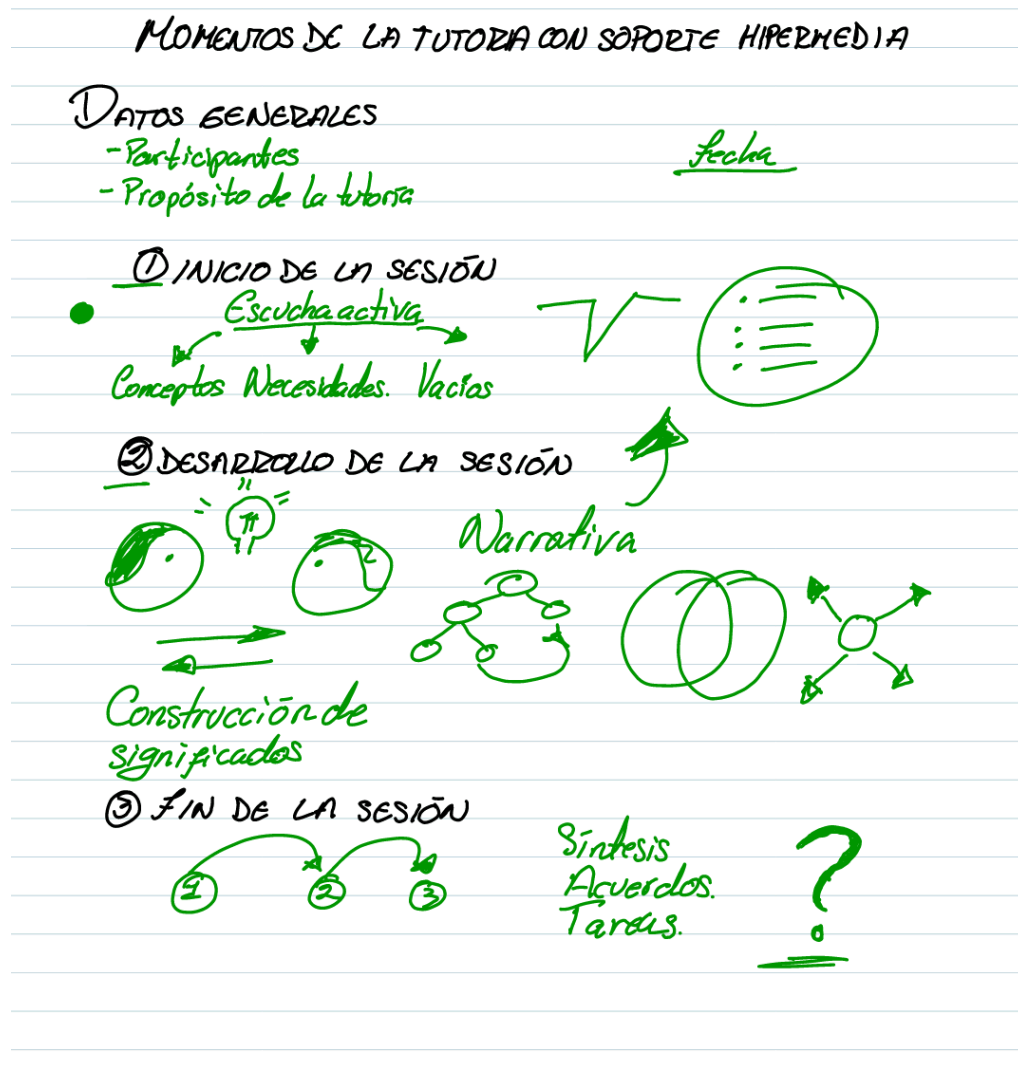 MOMENTOS DE LA TUTORIA CON SOPORTE HIPERMEDIA
DATOS GENERALES
- Participantes
fecha
- Propósito de la tutoría
① INICIO DE LA SESIÓN
Escucha activa
Conceptos Necesidades. Vacíos
② DESARROLLO DE LA SESIÓN
Narrativa
Construcción de
significados
③ FIN DE LA SESIÓN
Síntesis
Acuerdos.
Tareas.
1 2 3
?